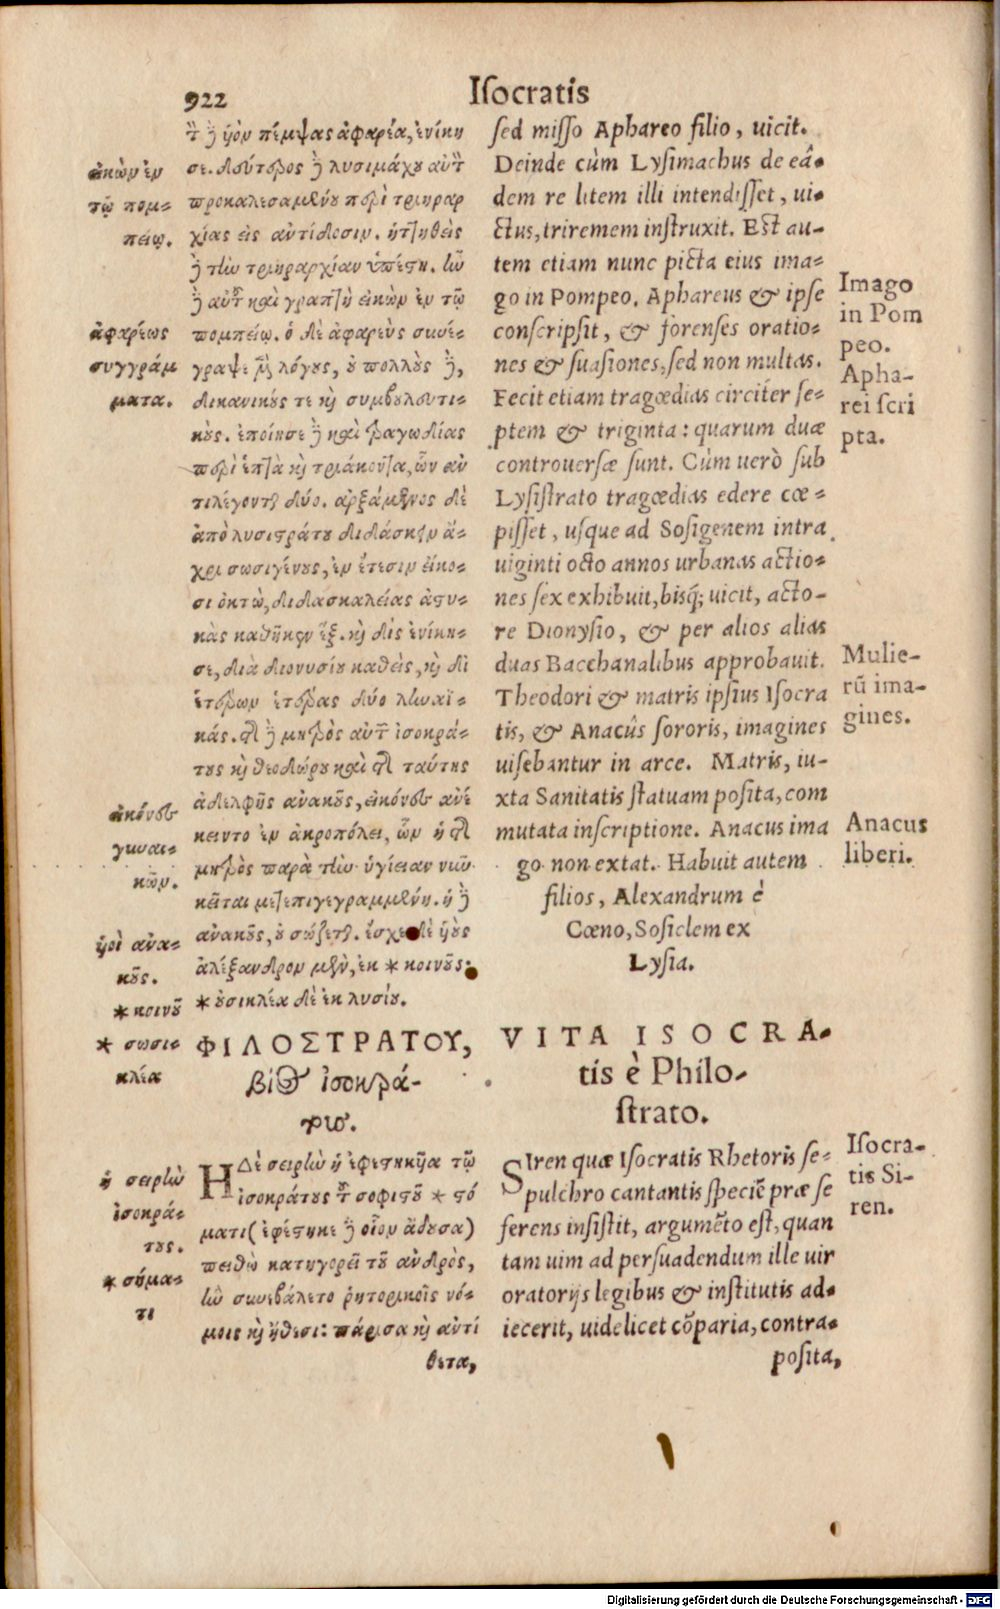 922
Iſocratis
εἰκὼν ἐν
τῷ πομ-
πείῳ.
ἀφαρέως
συγγράμ
ματα.
εἰκόνες
γυναι-
κῶν.
ὑοὶ ἀνα-
κοῦς.
* κοινοῦ
* σωσι-
κλέα
ἡ σειρὴν
ἰσοκρά-
τους.
* σήμα-
τι
τὸν δὲ ὑὸν πέμψας ἀφαρέα, ἐνίκη
σε. δεύτερος δὲ λυσιμάχου αὐτὸν
προκαλεσαμένου περὶ τριηραρ
χίας εἰς ἀντίδοσιν. ἡττηθεὶς
δὲ τὴν τριηραρχίαν ὑπέστη. ἦν
δὲ αὐτοῦ καὶ γραπτὴ εἰκὼν ἐν τῷ
πομπείῳ. ὁ δὲ ἀφαρεὺς συνέ-
γραψε μὲν λόγους, οὐ πολλοὺς δὲ,
δικανικούς τε καὶ συμβουλευτι-
κούς. ἐποίησε δὲ καὶ τραγωδίας
περὶ ἑπτὰ καὶ τριάκοντα, ὧν ἀν
τιλέγονται δύο. ἀρξάμενος δὲ
ἀπὸ λυσιστράτου διδάσκειν ἄ-
χρι σωσιγένους, ἐν ἔτεσιν εἴκο-
σι ὀκτὼ, διδασκαλείας ἀστυ-
κὰς καθῆκεν ἓξ. καὶ δὶς ἐνίκη-
σε, διὰ διονυσίου καθεὶς, καὶ δι
ἑτέρων ἑτέρας δύο ληναϊ-
κάς. τῆς δὲ μητρὸς αὐτοῦ ἰσοκρά-
τους καὶ θεοδώρου καὶ τῆς ταύτης
ἀδελφῆς ἀνακοῦς, εἰκόνες ἀνέ
κειντο ἐν ἀκροπόλει, ὧν ἡ τῆς
μητρὸς παρὰ τὴν ὑγίειαν νῦν
κεῖται μετεπιγεγραμμένη. ἡ δὲ
ἀνακοῦς, οὐ σώζεται. ἔσχε δὲ ὑοὺς
ἀλέξανδρον μὲν, ἐκ * κοινοῦς.
* οὐσικλέα δὲ ἐκ λυσίου.
ΦΙΛΟΣΤΡΑΤΟΥ,
βίος ἰσοκρά-
τους.
Η Δὲ σειρὴν ἡ ἐφεστηκῦα τῷ
ἰσοκράτους τοῦ σοφιστοῦ * στό
ματι (ἐφέστηκε δὲ οἷον ᾄδουσα)
πειθὼ κατηγορεῖ τοῦ ἀνδρὸς,
ἣν συνεβάλετο ῥητορικοῖς νό-
μοις καὶ ἤθεσι: πάρισα καὶ ἀντί
θετα,
ſed miſſo Aphareo filio, uicit.
Deinde cùm Lyſimachus de eâ-
dem re litem illi intendiſſet, ui-
ctus, triremem inſtruxit. Eſt au-
tem etiam nunc picta eius ima-
go in Pompeo. Aphareus & ipſe
conſcripſit, & forenſes oratio-
nes & ſuaſiones, ſed non multas.
Fecit etiam tragœdias circiter ſe-
ptem & triginta: quarum duæ
controuerſæ ſunt. Cùm uerò ſub
Lyſiſtrato tragœdias edere cœ-
piſſet, uſque ad Soſigenem intra
uiginti octo annos urbanas actio-
nes ſex exhibuit, bisq́; uicit, acto-
re Dionyſio, & per alios alias
duas Bacchanalibus approbauit.
Theodori & matris ipſius Iſocra
tis, & Anacûs ſororis, imagines
uiſebantur in arce. Matris, iu-
xta Sanitatis ſtatuam poſita, com
mutata inſcriptione. Anacus ima
go non extat. Habuit autem
filios, Alexandrum è
Cœno, Soſiclem ex
Lyſia.
VITA ISOCRA-
tis è Philo-
ſtrato.
SIren quæ Iſocratis Rhetoris ſe-
pulchro cantantis ſpeciē præ ſe
ferens inſiſtit, argumēto eſt, quan
tam uim ad perſuadendum ille uir
oratorijs legibus & inſtitutis ad-
iecerit, uidelicet cōparia, contra-
poſita,
Imago
in Pom
peo.
Apha-
rei ſcri
pta.
Mulie-
rū ima-
gines.
Anacus
liberi.
Iſocra-
tis Si-
ren.
Digitalisierung gefördert durch die Deutsche Forschungsgemeinschaft - DFG